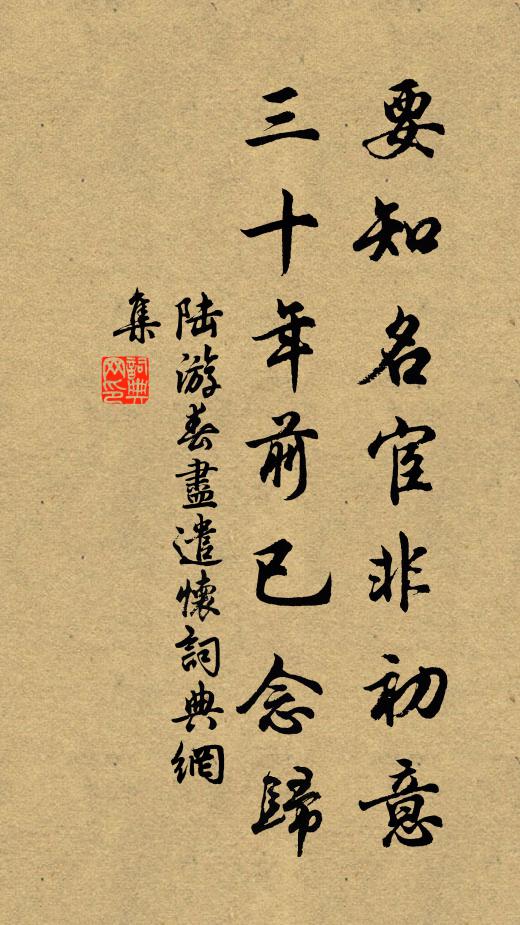 要知名宦非初意
三十年前已念歸
陆游春盡遣懷詞典網
集
詞典网印